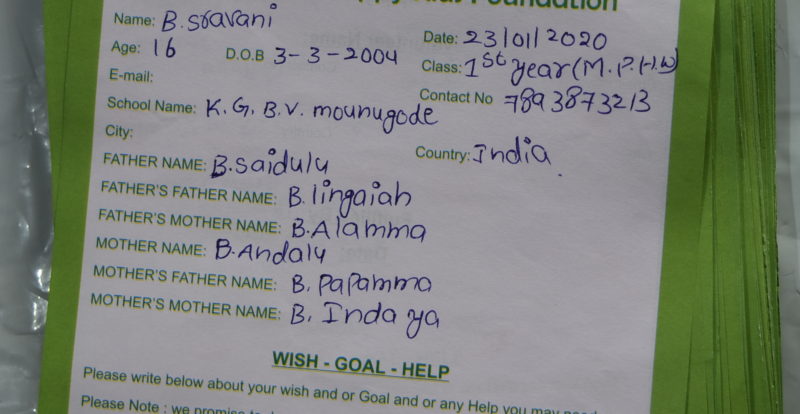 Foundation
Name: B. sravani
Date: 23/01/2020
Age: 16 D.O.B 3-3-2004
Class: 1st year (M.P.H.W)
E-mail:
Contact No 7893873213
School Name: K.G.B.V. mounugode
City:
Country: India
FATHER NAME: B. saidulu
FATHER'S FATHER NAME: B. lingaiah
FATHER'S MOTHER NAME: B. Alamma
MOTHER NAME: B. Andalu
MOTHER'S FATHER NAME: B. papamma
MOTHER'S MOTHER NAME: B. Inda ya
WISH - GOAL - HELP
Please write below about your wish and or Goal and or any Help you may
Please Note : we